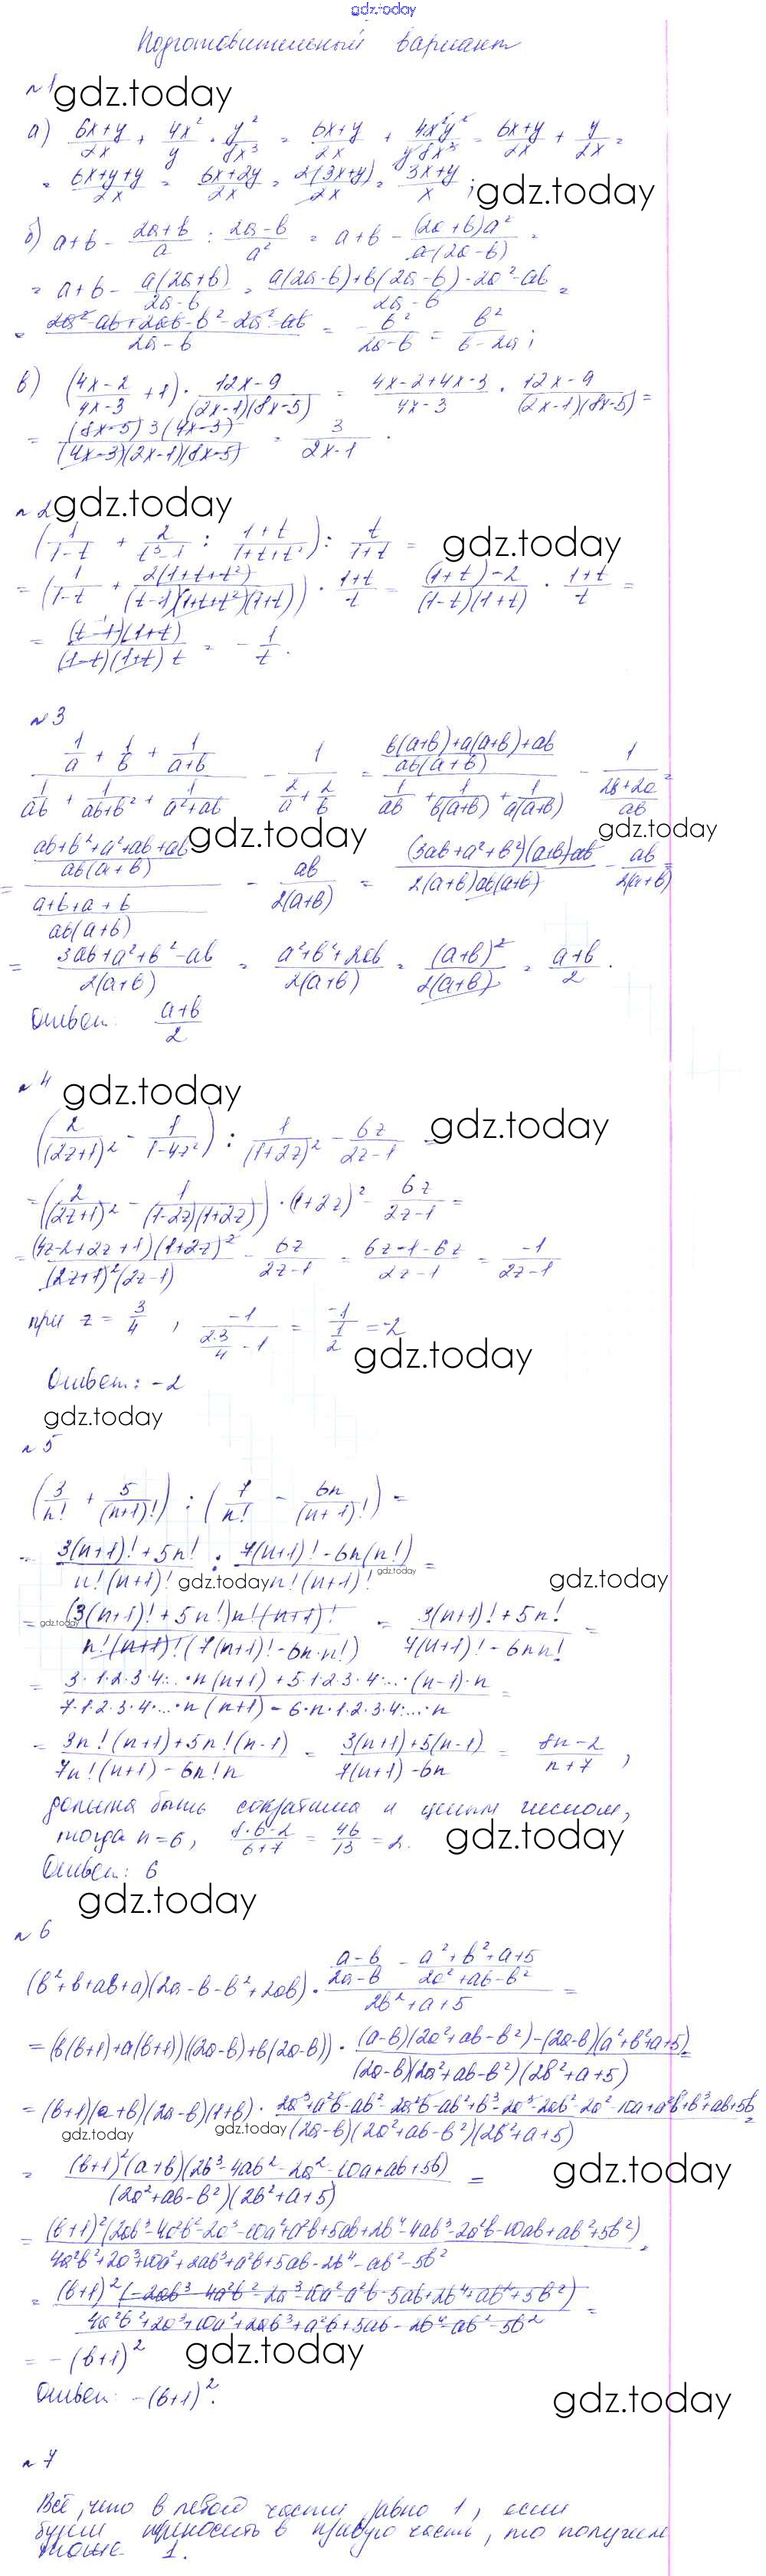 gdz.today
Подготовительный вариант
№1 gdz.today
а) (6x+y)/2x + 4x²/y · y²/8x³ = (6x+y)/2x + 4x²y²/y8x³ = (6x+y)/2x + y/2x =
= (6x+y+y)/2x = (6x+2y)/2x = 2(3x+y)/2x = (3x+y)/x ; gdz.today
б) a+b - (2a+b)/a : (2a-b)/a² = a+b - (2a+b)a²/a(2a-b) =
= a+b - a(2a+b)/(2a-b) = (a(2a-b)+b(2a-b)-2a²-ab)/(2a-b) =
= (2a²-ab+2ab-b²-2a²-ab)/(2a-b) = - b²/(2a-b) = b²/(b-2a) ;
в) ((4x-2)/(4x-3) + 1) · (12x-9)/((2x-1)(8x-5)) = (4x-2+4x-3)/(4x-3) · (12x-9)/((2x-1)(8x-5)) =
= (8x-5)3(4x-3)/((4x-3)(2x-1)(8x-5)) = 3/(2x-1) .
№2 gdz.today
(1/(1-t) + 2/(t³-1) : (1+t)/(1+t+t²)) : t/(1+t) = gdz.today
= (1/(1-t) + 2(1+t+t²)/((t-1)(1+t+t²)(1+t))) · (1+t)/t = ((1+t)-2)/((1-t)(1+t)) · (1+t)/t =
= (t-1)(1+t)/((1-t)(1+t)t) = - 1/t .
№3
(1/a + 1/b + 1/(a+b))/(1/ab + 1/(ab+b²) + 1/(a²+ab)) - 1/(2/a + 2/b) = ((b(a+b)+a(a+b)+ab)/ab(a+b))/(1/ab + 1/b(a+b) + 1/a(a+b)) - 1/((2b+2a)/ab) =
gdz.today gdz.today
= ((ab+b²+a²+ab+ab)/ab(a+b))/((a+b+a+b)/ab(a+b)) - ab/2(a+b) = (3ab+a²+b²)(a+b)ab/2(a+b)ab(a+b) - ab/2(a+b) =
= (3ab+a²+b²-ab)/2(a+b) = (a²+b²+2ab)/2(a+b) = (a+b)²/2(a+b) = (a+b)/2 .
Ответ: (a+b)/2
№4 gdz.today
(2/(2z+1)² - 1/(1-4z²)) : 1/(1+2z)² - 6z/(2z-1) = gdz.today
= (2/(2z+1)² - 1/((1-2z)(1+2z))) · (1+2z)² - 6z/(2z-1) =
= (4z-2+2z+1)(1+2z)²/((2z+1)²(2z-1)) - 6z/(2z-1) = (6z-1-6z)/(2z-1) = -1/(2z-1)
при z = 3/4 , -1/(2·3/4 - 1) = -1/(1/2) = -2
gdz.today
Ответ: -2
gdz.today
№5
(3/n! + 5/(n+1)!) : (7/n! - 6n/(n+1)!) =
= (3(n+1)!+5n!)/n!(n+1)! : (7(n+1)!-6n(n!))/n!(n+1)! =
gdz.today gdz.today gdz.today
= (3(n+1)!+5n!)n!(n+1)!/n!(n+1)!(7(n+1)!-6n·n!) = (3(n+1)!+5n!)/(7(n+1)!-6nn!) =
gdz.today
= (3·1·2·3·4·...·n(n+1)+5·1·2·3·4·...·(n-1)·n)/(7·1·2·3·4·...·n(n+1)-6·n·1·2·3·4·...·n) =
= (3n!(n+1)+5n!(n-1))/(7n!(n+1)-6n!n) = (3(n+1)+5(n-1))/(7(n+1)-6n) = (8n-2)/(n+7) ,
должна быть сократима и целым числом,
тогда n=6, (8·6-2)/(6+7) = 46/13 = 2. gdz.today
Ответ: 6
gdz.today
№6
(b²+b+ab+a)(2a-b-b²+2ab) · ((a-b)/(2a-b) - (a²+b²+a+5)/(2a²+ab-b²))/(2b²+a+5) =
= (b(b+1)+a(b+1))((2a-b)+b(2a-b)) · ((a-b)(2a²+ab-b²)-(2a-b)(a²+b²+a+5))/((2a-b)(2a²+ab-b²)(2b²+a+5)) =
= (b+1)(a+b)(2a-b)(1+b) · (2a³+a²b-ab²-2a²b-ab²+b³-2a³-2ab²-2a²-10a+a²b+b³+ab+5b)/((2a-b)(2a²+ab-b²)(2b²+a+5)) =
gdz.today gdz.today
= (b+1)²(a+b)(2b³-4ab²-2a²-10a+ab+5b)/((2a²+ab-b²)(2b²+a+5)) = gdz.today
= (b+1)²(2ab³-4a²b²-2a³-10a²+a²b+5ab+2b⁴-4ab³-2a²b-10ab+ab²+5b²)/(4a²b²+2a³+10a²+2ab³+a²b+5ab-2b⁴-ab²-5b²) =
= (b+1)²(-2ab³-4a²b²-2a³-10a²-a²b-5ab+2b⁴+ab²+5b²)/(4a²b²+2a³+10a²+2ab³+a²b+5ab-2b⁴-ab²-5b²) =
= -(b+1)² gdz.today
Ответ: -(b+1)². gdz.today
№7
Всё, что в левой части равно 1, если
будем приносить в правую часть, то получим
тоже 1.